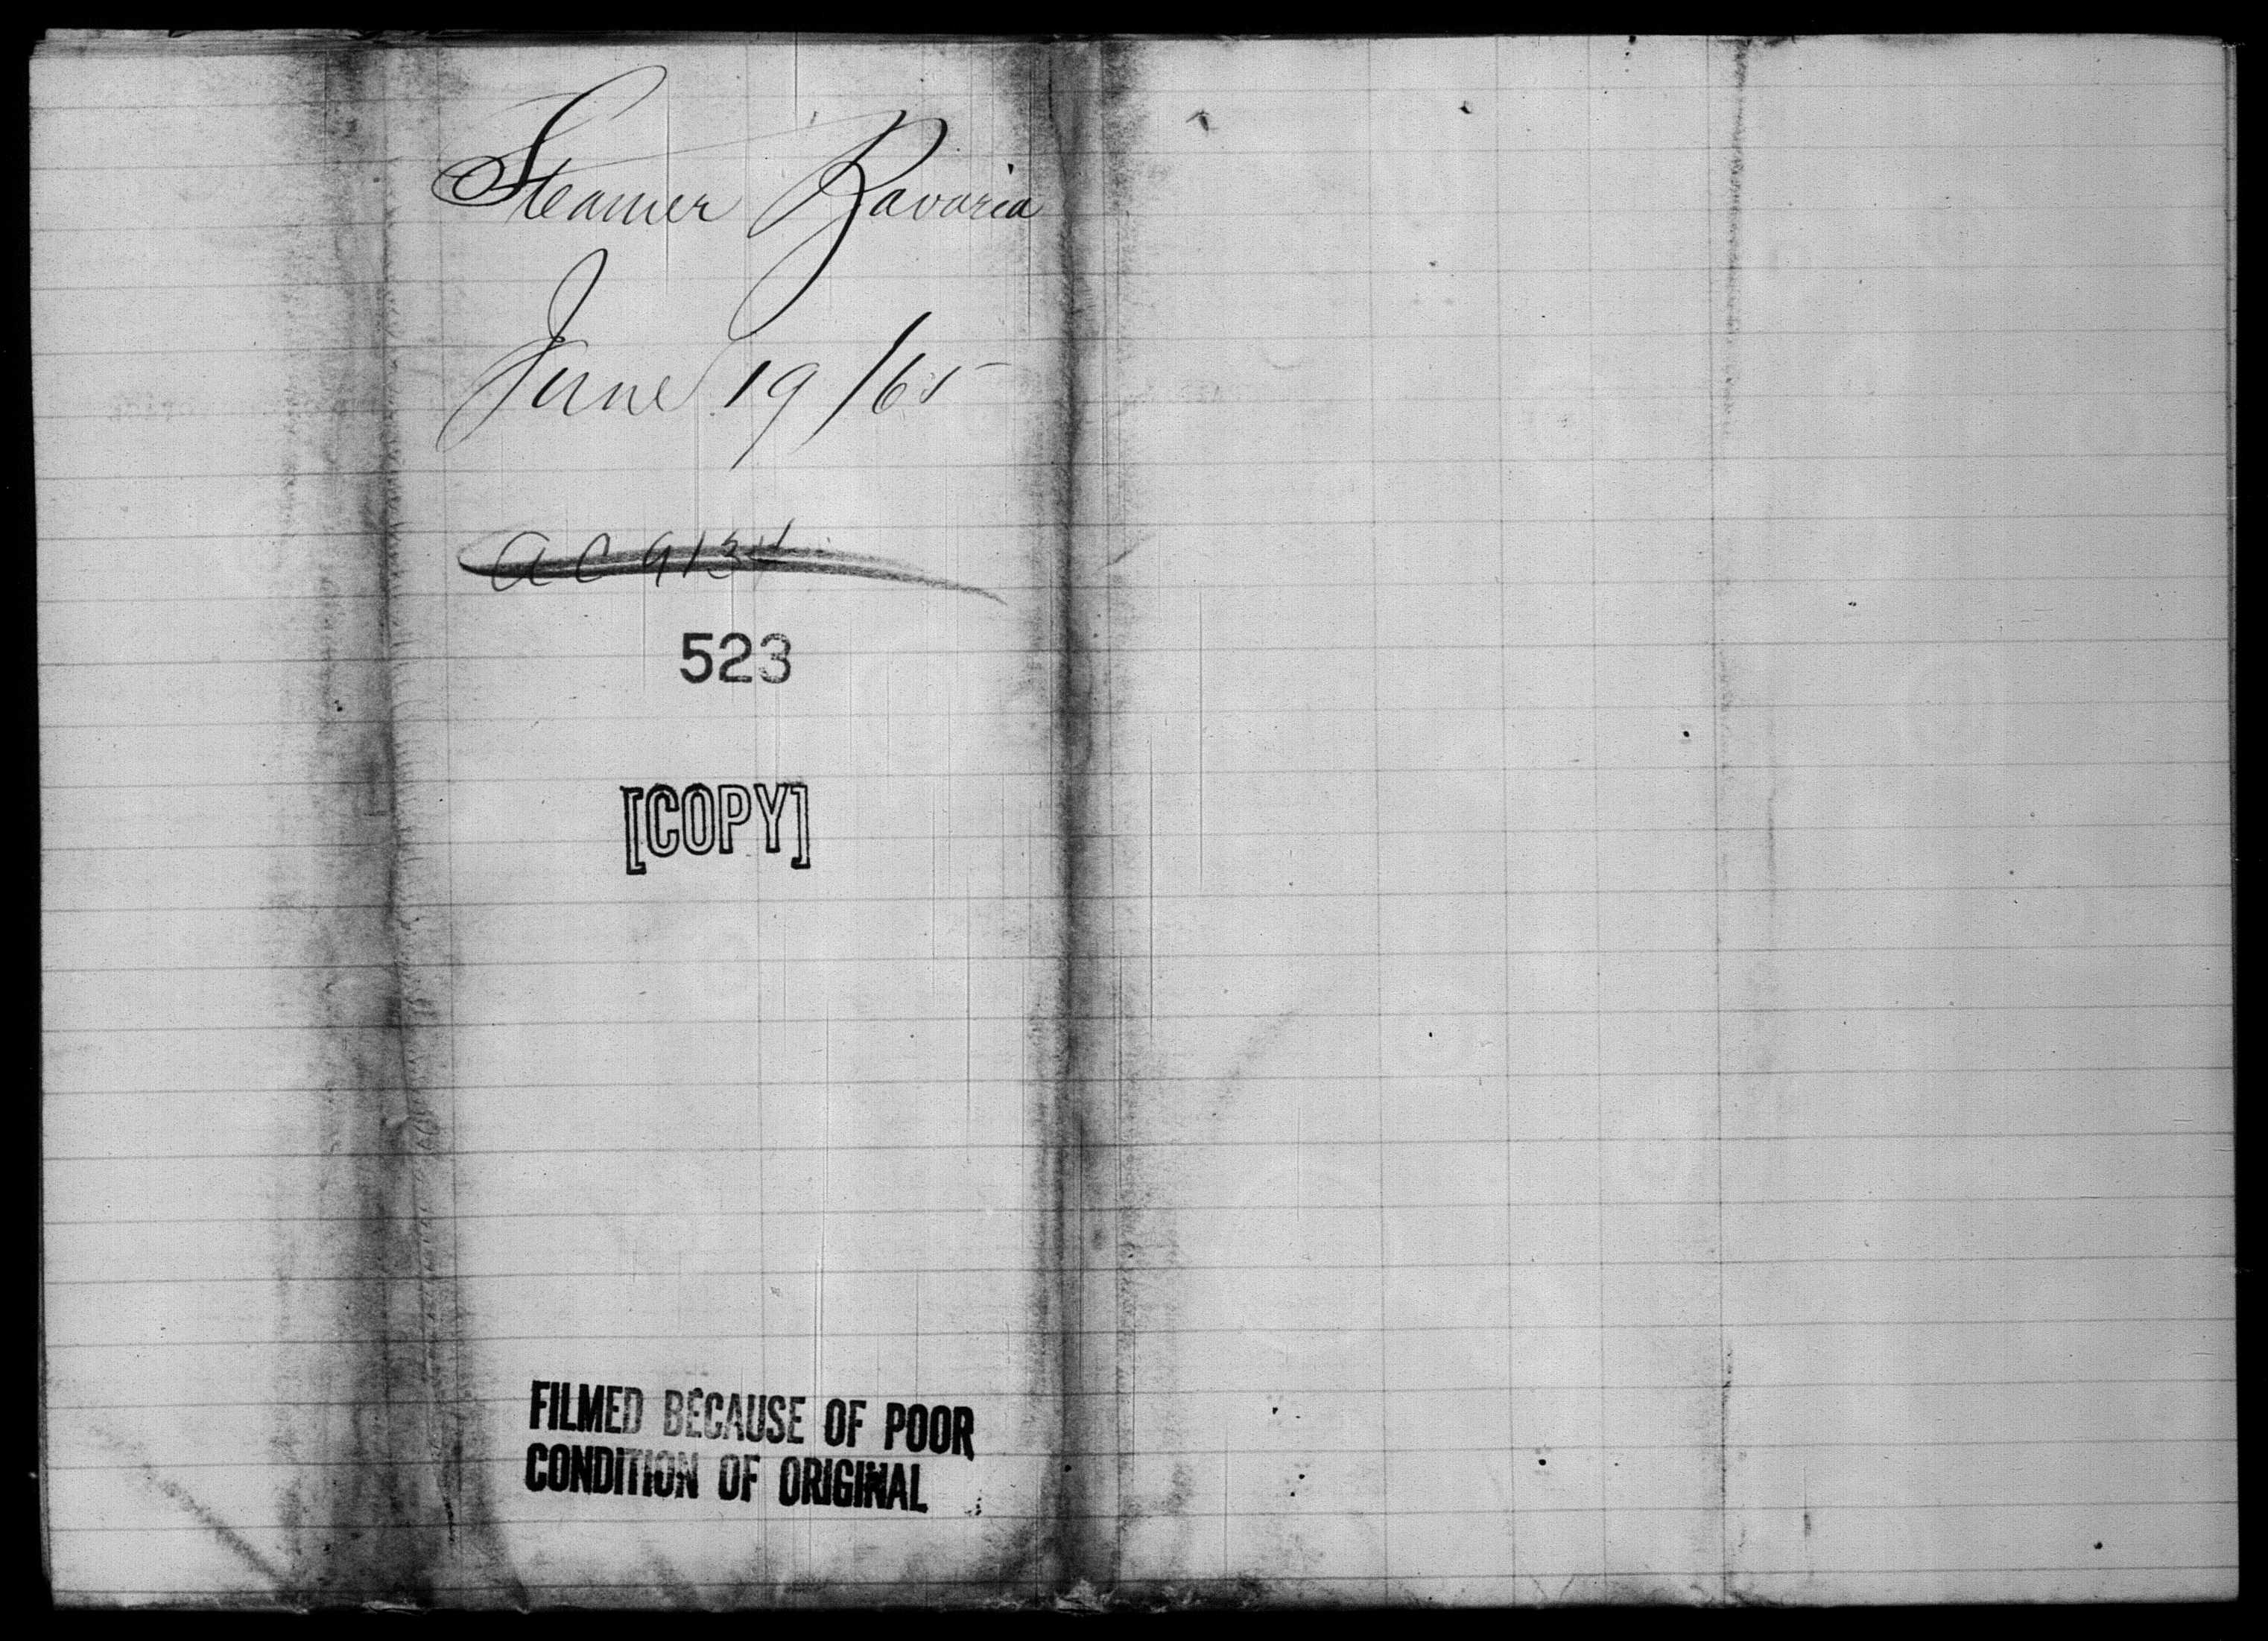 Steamer Bavaria
June 19/65
AC 9134
523
[COPY]
FILMED BECAUSE OF POOR
CONDITION OF ORIGINAL